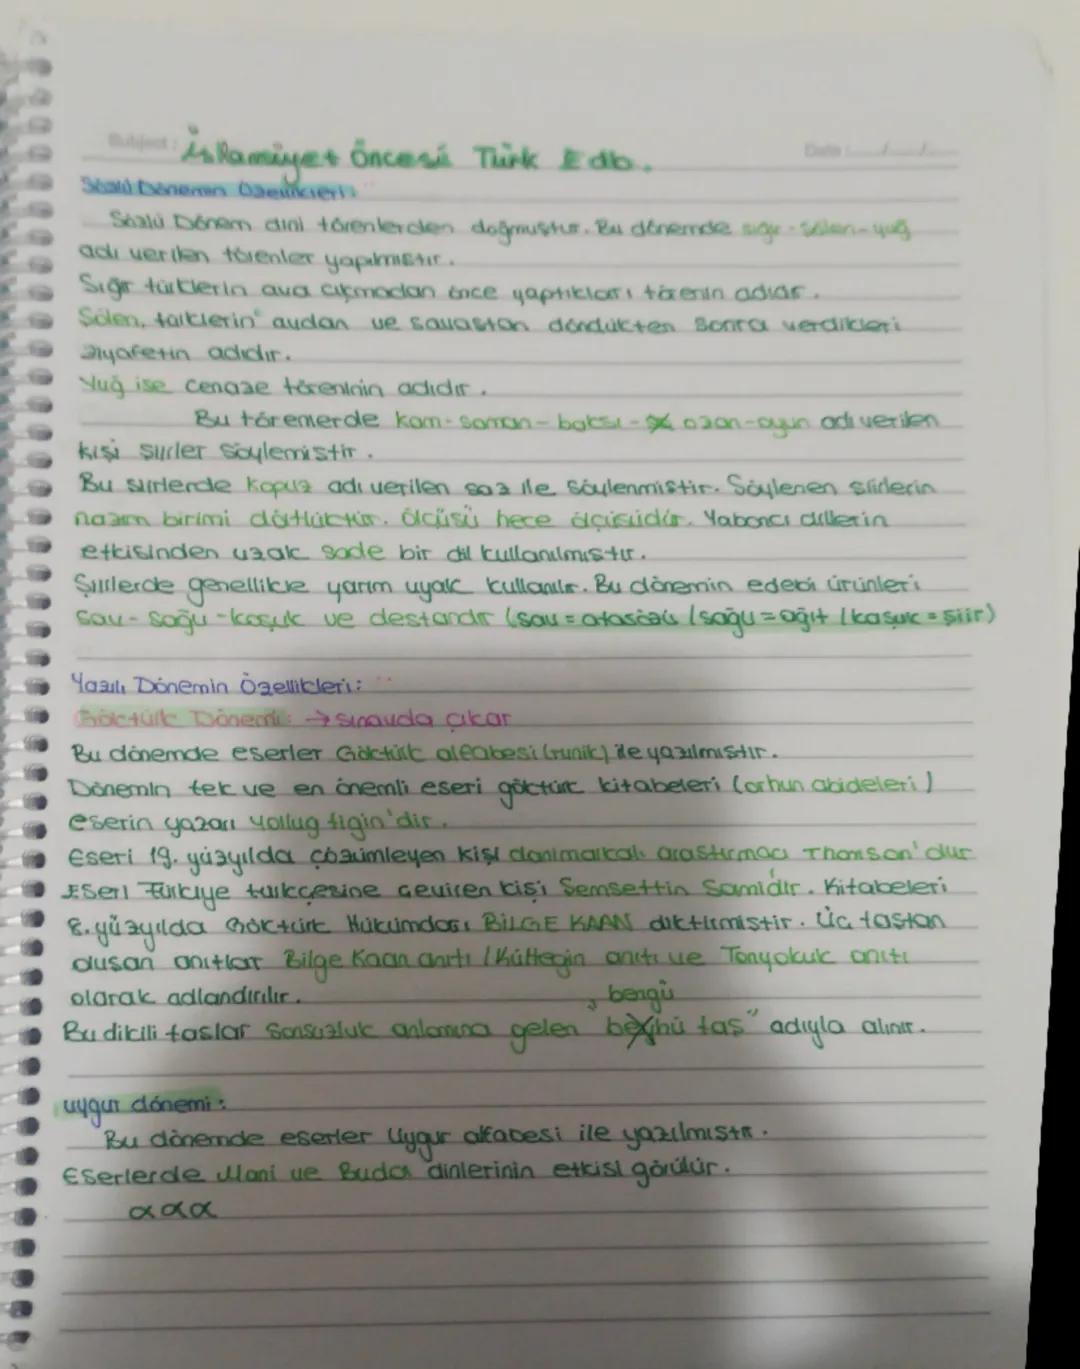 Subject: İslamiyet Öncesi Türk Edb. Date :
Sözlü Dönemin Özellikleri:
Sözlü Dönem dini törenlerden doğmuştur. Bu dönemde sığır-şölen-yuğ
adı verilen törenler yapılmıştır.
Sığır türklerin ava çıkmadan önce yaptıkları törenin adıdır.
Şölen, türklerin avdan ve savaştan döndükten sonra verdikleri
ziyafetin adıdır.
Yuğ ise cenaze töreninin adıdır.
Bu törenlerde kam-şaman-baksı- ozan-oyun adı verilen
kişi şiirler söylemiştir.
Bu şiirlerde kopuz adı verilen saz ile söylenmiştir. Söylenen şiirlerin
nazım birimi dörtlüktür. Ölçüsü hece ölçüsüdür. Yabancı dillerin
etkisinden uzak sade bir dil kullanılmıştır.
Şiirlerde genellikle yarım uyak kullanılır. Bu dönemin edebi ürünleri
sav-sagu-koşuk ve destandır (sav = atasözü / sağu = ağıt / koşuk = şiir)
Yazılı Dönemin Özellikleri:
Göktürk Dönemi: → sınavda çıkar
Bu dönemde eserler Göktürk alfabesi (runik) ile yazılmıştır.
Dönemin tek ve en önemli eseri göktürk kitabeleri (orhun abideleri)
eserin yazarı yollug tigin'dir.
Eseri 19. yüzyılda çözümleyen kişi danimarkalı araştırmacı Thomson'dur
Eseri Türkiye türkçesine çeviren kişi Şemsettin Samidir. Kitabeleri
8. yüzyılda Göktürk Hükümdarı BİLGE KAAN diktirmiştir. Üç taştan
oluşan anıtlar Bilge Kaan anıtı / Kültegin anıtı ve Tonyokuk anıtı
olarak adlandırılır.
bengü
Bu dikili taşlar Sonsuzluk anlamına gelen " taş" adıyla alınır.
uygur dönemi:
Bu dönemde eserler Uygur alfabesi ile yazılmıştır.
Eserlerde Mani ve Buda dinlerinin etkisi görülür.